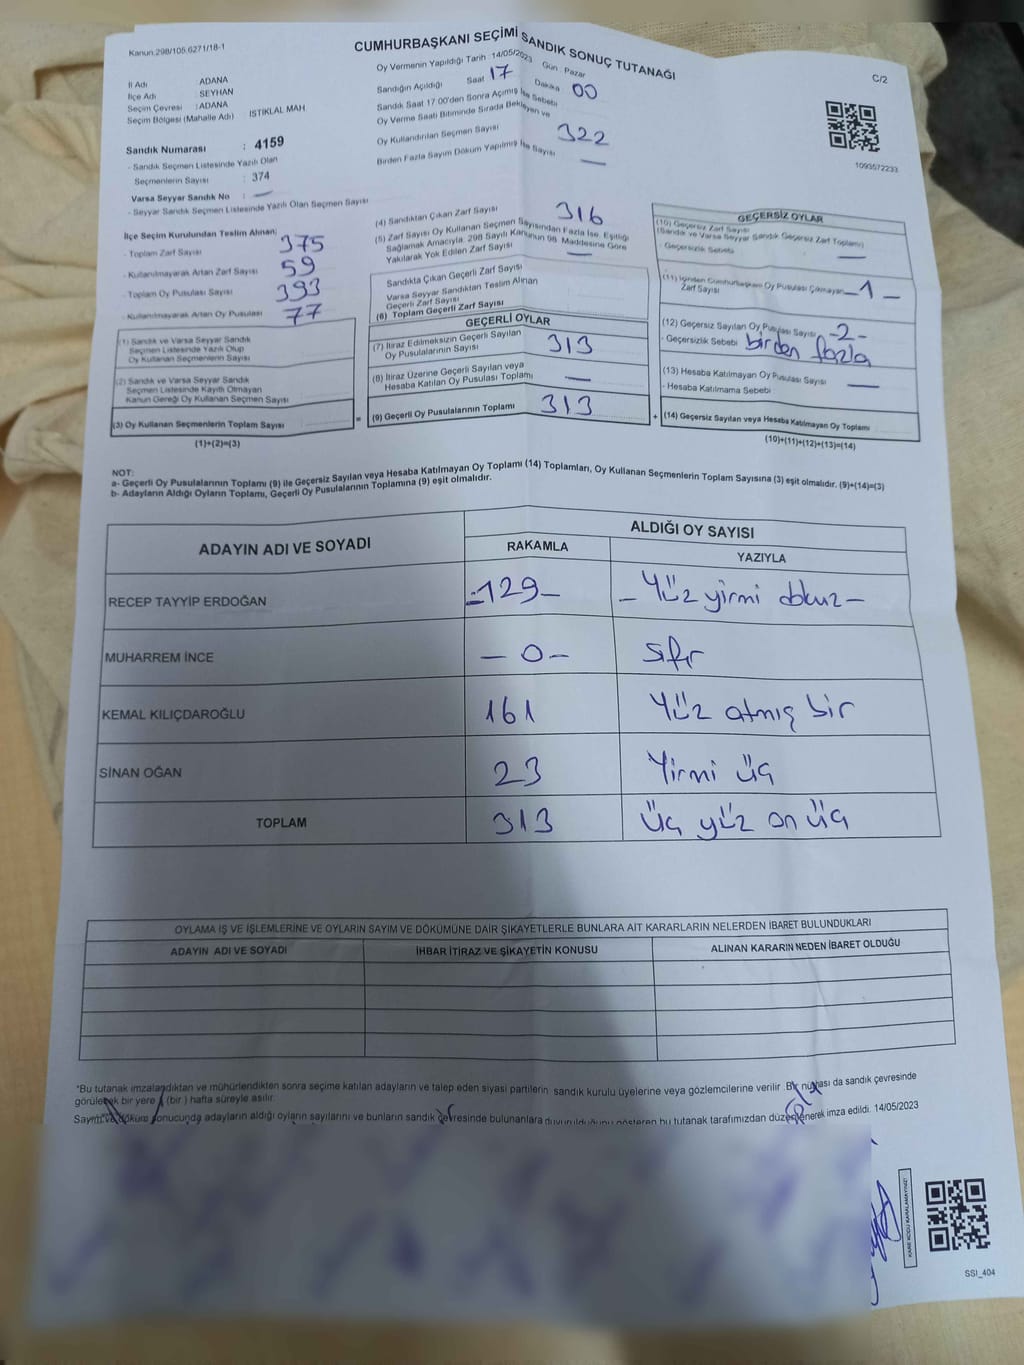 Kanun.298/105.6271/18-1
CUMHURBAŞKANI SEÇİMİ SANDIK SONUÇ TUTANAĞI
C/2
Oy Vermenin Yapıldığı Tarih :14/05/2023 Gün : Pazar
İl Adı : ADANA
İlçe Adı : SEYHAN
Seçim Çevresi : ADANA
Seçim Bölgesi (Mahalle Adı) : ISTİKLAL MAH
Sandığın Açıldığı Saat 17 Dakika 00
Sandık Saat 17.00'den Sonra Açımış İse Sebebi
Oy Verme Saati Bitiminde Sırada Bekleyen ve
Oy Kullandırılan Seçmen Sayısı 322
Birden Fazla Sayım Döküm Yapılmış İse Sayısı —
1093572233
Sandık Numarası : 4159
- Sandık Seçmen Listesinde Yazılı Olan
Seçmenlerin Sayısı : 374
Varsa Seyyar Sandık No : —
- Seyyar Sandık Seçmen Listesinde Yazılı Olan Seçmen Sayısı
İlçe Seçim Kurulundan Teslim Alınan;
- Toplam Zarf Sayısı 375
- Kullanılmayarak Artan Zarf Sayısı 59
- Toplam Oy Pusulası Sayısı 393
- Kullanılmayarak Artan Oy Pusulası 77
(1) Sandık ve Varsa Seyyar Sandık
Seçmen Listesinde Yazılı Olup
Oy Kullanan Seçmenlerin Sayısı
(2) Sandık ve Varsa Seyyar Sandık
Seçmen Listesinde Kayıtlı Olmayan
Kanun Gereği Oy Kullanan Seçmen Sayısı
(3) Oy Kullanan Seçmenlerin Toplam Sayısı
(1)+(2)=(3)
(4) Sandıktan Çıkan Zarf Sayısı 316
(5) Zarf Sayısı Oy Kullanan Seçmen Sayısından Fazla İse, Eşitliği
Sağlamak Amacıyla, 298 Sayılı Kanunun 98. Maddesine Göre
Yakılarak Yok Edilen Zarf Sayısı —
Sandıkta Çıkan Geçerli Zarf Sayısı
Varsa Seyyar Sandıktan Teslim Alınan
Geçerli Zarf Sayısı
(6) Toplam Geçerli Zarf Sayısı
GEÇERLİ OYLAR
(7) İtiraz Edilmeksizin Geçerli Sayılan
Oy Pusulalarının Sayısı 313
(8) İtiraz Üzerine Geçerli Sayılan veya
Hesaba Katılan Oy Pusulası Toplamı —
= (9) Geçerli Oy Pusulalarının Toplamı 313
GEÇERSİZ OYLAR
(10) Geçersiz Zarf Sayısı
(Sandık ve Varsa Seyyar Sandık Geçersiz Zarf Toplamı)
- Geçersizlik Sebebi —
(11) İçinden Cumhurbaşkanı Oy Pusulası Çıkmayan
Zarf Sayısı —1—
(12) Geçersiz Sayılan Oy Pusulası Sayısı -2-
- Geçersizlik Sebebi birden fazla
(13) Hesaba Katılmayan Oy Pusulası Sayısı —
- Hesaba Katılmama Sebebi
+ (14) Geçersiz Sayılan veya Hesaba Katılmayan Oy Toplamı
(10)+(11)+(12)+(13)=(14)
NOT:
a- Geçerli Oy Pusulalarının Toplamı (9) ile Geçersiz Sayılan veya Hesaba Katılmayan Oy Toplamı (14) Toplamları, Oy Kullanan Seçmenlerin Toplam Sayısına (3) eşit olmalıdır. (9)+(14)=(3)
b- Adayların Aldığı Oyların Toplamı, Geçerli Oy Pusulalarının Toplamına (9) eşit olmalıdır.
ADAYIN ADI VE SOYADI ALDIĞI OY SAYISI
RAKAMLA YAZIYLA
RECEP TAYYİP ERDOĞAN -129- - Yüz yirmi dokuz -
MUHARREM İNCE -0- Sıfır
KEMAL KILIÇDAROĞLU 161 Yüz atmış bir
SİNAN OĞAN 23 Yirmi üç
TOPLAM 313 Üç yüz on üç
OYLAMA İŞ VE İŞLEMLERİNE VE OYLARIN SAYIM VE DÖKÜMÜNE DAİR ŞİKAYETLERLE BUNLARA AİT KARARLARIN NELERDEN İBARET BULUNDUKLARI
ADAYIN ADI VE SOYADI İHBAR İTİRAZ VE ŞİKAYETİN KONUSU ALINAN KARARIN NEDEN İBARET OLDUĞU
*Bu tutanak imzalandıktan ve mühürlendikten sonra seçime katılan adayların ve talep eden siyasi partilerin sandık kurulu üyelerine veya gözlemcilerine verilir. Bir nüshası da sandık çevresinde
görülecek bir yere 1 (bir) hafta süreyle asılır.
Sayım ve döküm sonucunda adayların aldığı oyların sayılarını ve bunların sandık çevresinde bulunanlara duyurulduğunu gösteren bu tutanak tarafımızdan düzenlenerek imza edildi. 14/05/2023
KARE KODU KARALAMAYINIZ!
SSI_404